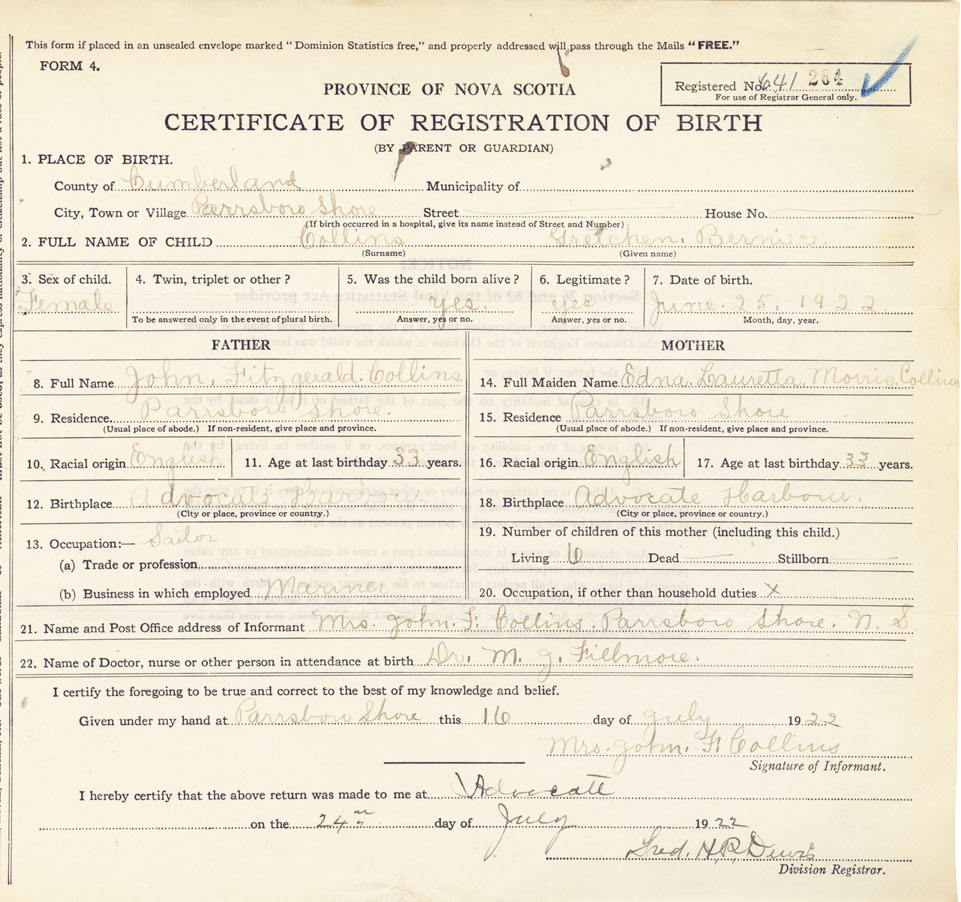 This form if placed in an unsealed envelope marked "Dominion Statistics free," and properly addressed will pass through the Mails "FREE."
FORM 4.
Registered No. 641 264
For use of Registrar General only.
PROVINCE OF NOVA SCOTIA
CERTIFICATE OF REGISTRATION OF BIRTH
(BY PARENT OR GUARDIAN)
1. PLACE OF BIRTH.
County of Cumberland Municipality of
City, Town or Village Parrsboro Shore Street House No.
(If birth occurred in a hospital, give its name instead of Street and Number)
2. FULL NAME OF CHILD Collins Gretchen. Berniece.
(Surname) (Given name)
3. Sex of child. 4. Twin, triplet or other? 5. Was the child born alive? 6. Legitimate? 7. Date of birth.
Female yes. yes June. 25. 1922
To be answered only in the event of plural birth. Answer, yes or no. Answer, yes or no. Month, day, year.
FATHER
8. Full Name John. Fitzgerald. Collins
9. Residence Parrsboro Shore.
(Usual place of abode.) If non-resident, give place and province.
10. Racial origin English 11. Age at last birthday 33 years.
12. Birthplace Advocate Harbour
(City or place, province or country.)
13. Occupation:— Sailor
(a) Trade or profession
(b) Business in which employed Mariner
MOTHER
14. Full Maiden Name Edna. Lauretta. Morris Collins
15. Residence Parrsboro Shore
(Usual place of abode.) If non-resident, give place and province.
16. Racial origin English 17. Age at last birthday 33 years.
18. Birthplace Advocate Harbour.
(City or place, province or country.)
19. Number of children of this mother (including this child.)
Living 6 Dead Stillborn
20. Occupation, if other than household duties x
21. Name and Post Office address of Informant Mrs. John. F. Collins. Parrsboro Shore. N. S
22. Name of Doctor, nurse or other person in attendance at birth Dr. M. J. Fillmore.
I certify the foregoing to be true and correct to the best of my knowledge and belief.
Given under my hand at Parrsboro Shore this 16 day of July 1922
Mrs. John. F. Collins
Signature of Informant.
I hereby certify that the above return was made to me at Advocate
on the 24 day of July 1922
Fred. H. R.
Division Registrar.